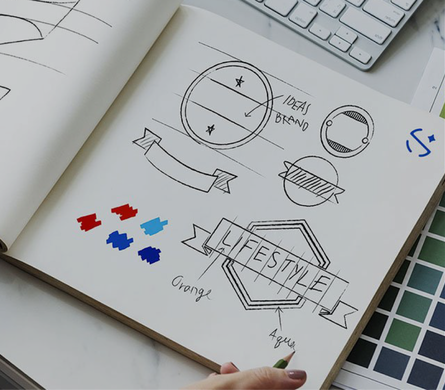 IDEAS
BRAND
LIFESTYLE
Orange
Aqua